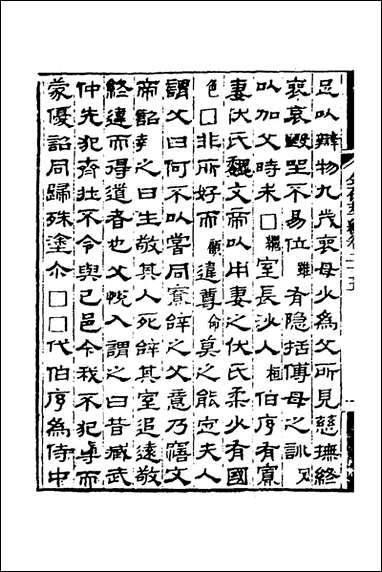 足以辯物九歲喪母少為父所見慈撫終
喪哀毀堊不易位雖有隱括傅母之訓又
以加父時未□繼室長沙人桓伯序有寡
妻伏氏魏文帝以妻之伏氏柔少有國
色□非所好而顧違尊命莫之能定夫人
謂父曰何不以當同寮辭之父意乃寤文
帝詔之曰生敬其人死辭其室追遠敬
終違而得道者也父悅入謂之曰昔臧武
仲先犯齊莊不令與己邑今我不犯幸而
蒙優詔同歸殊塗尒□□代伯序為侍中